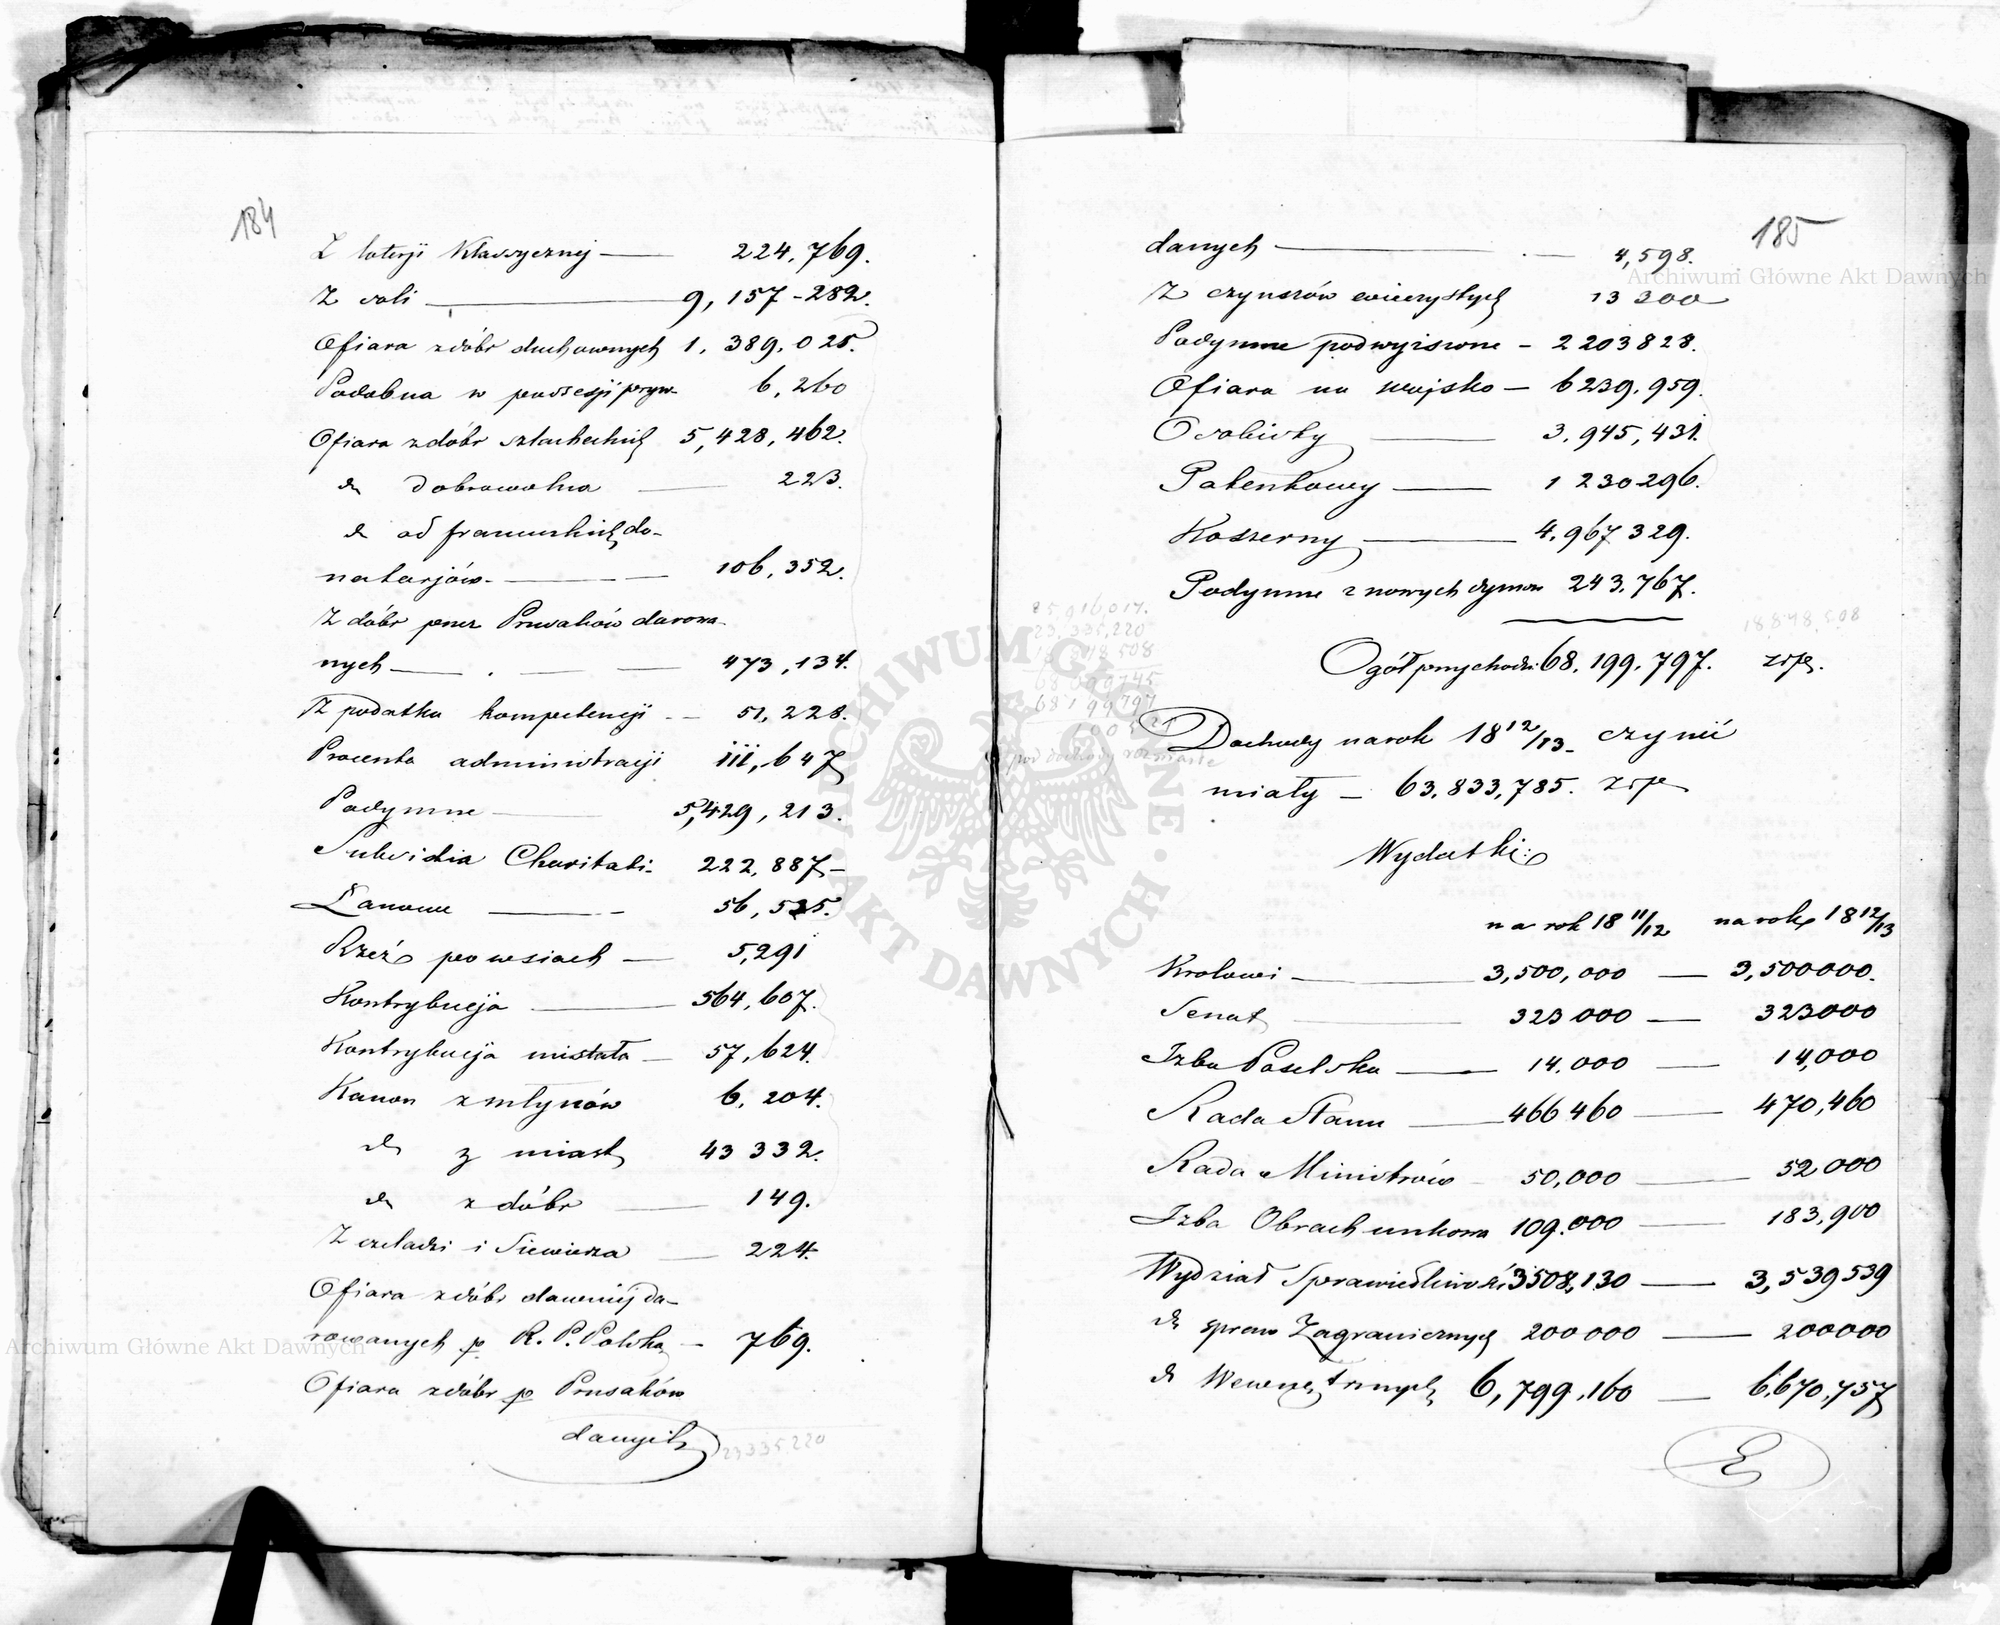 184
Z loterji Klassycznej — 224,769.
Z soli — 9,157-282.
Ofiara z dóbr duchownych 1,389,025.
Podobna w possesji pryw. 6,260
Ofiara z dóbr szlacheckich 5,428,462.
do dobrowolna — 223.
do od francuskich do-
natarjów. — 106,352.
Z dóbr przez Prusaków darowa-
nych — 473,134.
Z podatku kompetencji — 51,228.
Procenta administracji 111,647
Podymne — 5,429,213.
Subsidia Charitati. 222,887 —
Łanowe — 56,525.
Rzeź po wsiach — 5,291
Kontrybucja — 564,607.
Kontrybucja niestała — 57,624.
Kanon z młynów 6,204.
do z miast 43 332.
do z dóbr — 149.
Z czeladzi i Siewierza — 224.
Ofiara z dóbr dawniej da-
rowanych p. R. P. Polską — 769.
Ofiara z dóbr p Prusaków
danych
23335,220
185
danych — 4,598.
Z czynszów wieczystych 13 300
Podymne podwyższone — 2 203 828.
Ofiara na wojsko — 6 239,959.
Osobisty — 3,945,431.
Patentowy — 1 230 296.
Koszerny — 4,967 329.
Podymne z nowych dymów 243,767.
18.848.508
Ogół przychodu 68,199,797. złp.
25,016,017.
23,335,220
18,848 508
68 199797
pod dochody rozmaite
Dochody na rok 18 12/13 — czynić
miały — 63,833,785. złp
Wydatki:
na rok 18 11/12 na rok 18 12/13
Krolowi — 3,500,000 — 3,500000.
Senat — 323 000 — 323000
Izba Poselska — 14.000 — 14,000
Rada Stanu — 466 460 — 470,460
Rada Ministrów 50,000 — 52 000
Izba Obrachunkowa 109.000 — 183,900
Wydział Sprawiedliwości 3508,130 — 3,539539
do spraw Zagranicznych 200 000 — 200000
do Wewnętrznych 6,799,160 — 6,670,757
Archiwum Główne Akt Dawnych
Archiwum Główne Akt Dawnych
ARCHIWUM GŁÓWNE · AKT DAWNYCH ·